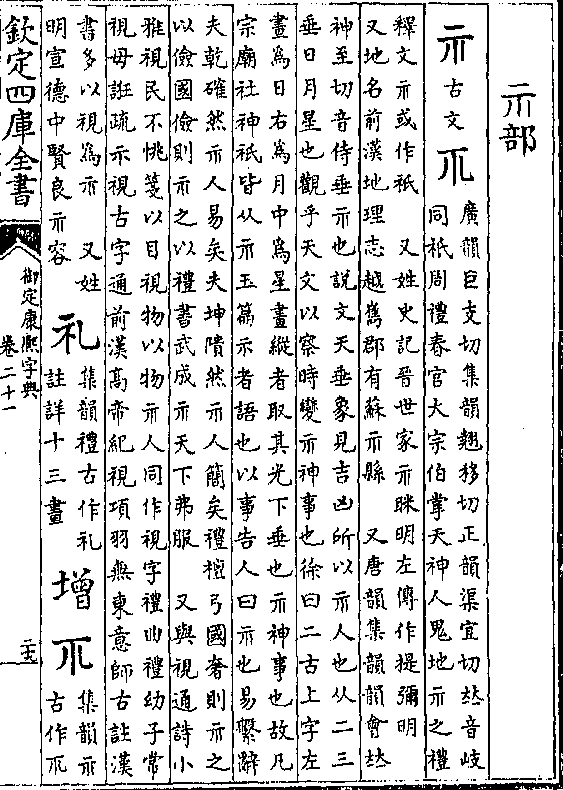 示部
示古文
廣韻巨支切集韻翹移切正韻渠宜切𠀤音岐
同祇周禮春官大宗伯掌天神人鬼地示之禮
釋文示或作祇 又姓史記晉世家示眯明左傳作提彌明
又地名前漢地理志越嶲郡有蘇示縣 又唐韻集韻韻會𠀤
神至切音侍垂示也說文天垂象見吉凶所以示人也从二三
垂日月星也觀乎天文以察時變示神事也徐曰二古上字左
畫為日右為月中為星畫縱者取其光下垂也示神事也故凡
宗廟社神祇皆从示玉篇示者語也以事告人曰示也易繫辭
夫乾確然示人易矣夫坤隤然示人簡矣禮檀弓國奢則示之
以儉國儉則示之以禮書武成示天下弗服 又與視通詩小
雅視民不恌箋以目視物以物示人同作視字禮曲禮幼子常
視毋誑疏示視古字通前漢高帝紀視項羽無東意師古註漢
書多以視為示 又姓
明宣德中賢良示容
礼
集韻禮古作礼
註詳十三畫
增
集韻示
古作
欽定四庫全書
御定康熙字典
卷二十一